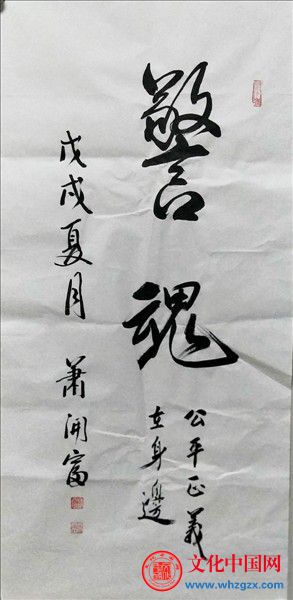 警魂
公平正義
在身邊
戊戌夏月 萧開富
文化中国网
www.whzgzx.com